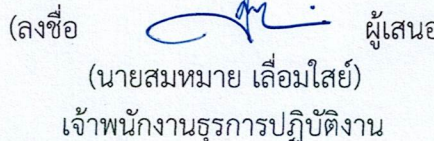 (ลงชื่อ ผู้เสนอ
(นายสมหมาย เลื่อมใสย์)
เจ้าพนักงานธุรการปฏิบัติงาน